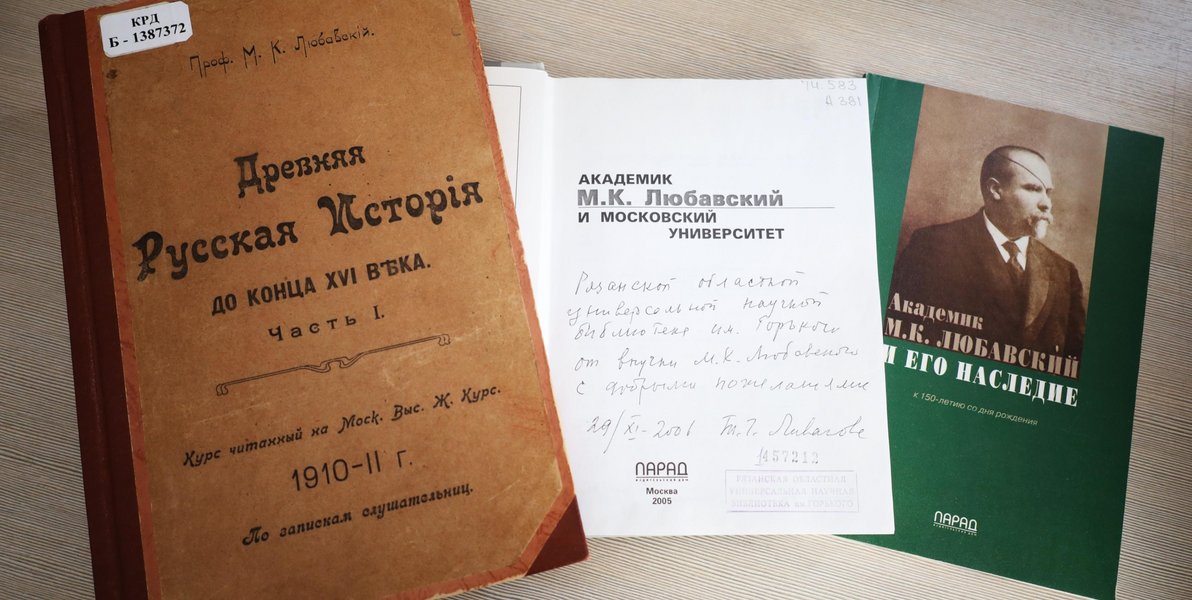 КРД
Б - 1387372
Проф. М. К. Любавскій.
Древняя
Русская Исторія
ДО КОНЦА XVI ВѢКА.
Часть I.
Курс читанный на Моск. Выс. Ж. Курс.
1910-II г.
По запискам слушательниц.
74.583
А 381
АКАДЕМИК
М.К. Любавский
И МОСКОВСКИЙ
УНИВЕРСИТЕТ
Рязанской областной
универсальной научной
библиотеке им. Горького
от внучки М.К. Любавского
с добрыми пожеланиями
29/XI-2006 Т.Г. Ливанова
ПАРАД
ИЗДАТЕЛЬСКИЙ ДОМ
Москва
2005
1457212
РЯЗАНСКАЯ ОБЛАСТНАЯ
УНИВЕРСАЛЬНАЯ НАУЧНАЯ
БИБЛИОТЕКА им ГОРЬКОГО
Академик
М.К. ЛЮБАВСКИЙ
И ЕГО НАСЛЕДИЕ
к 150-летию со дня рождения
ПАРАД
ИЗДАТЕЛЬСКИЙ ДОМ